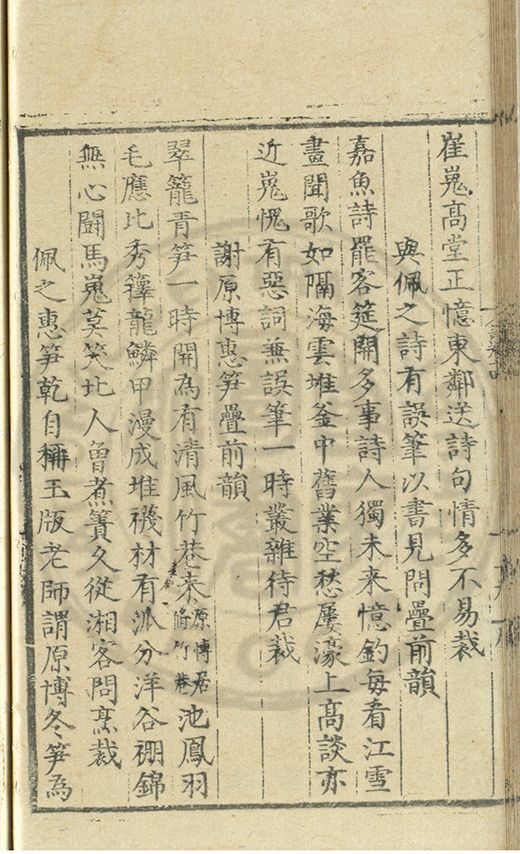 崔嵬高堂正憶東鄰送詩句情多不易裁
與佩之詩有誤筆以書見問疊前韻
嘉魚詩罷客筵開多事詩人獨未来憶釣每看江雪
畫聞歌如隔海雲堆釜中舊業空愁屢濠上高談亦
近嵬愧有惡詞兼誤筆一時叢雜待君裁
謝原博惠笋疊前韻
翠籠青笋一時開為有清風竹巷来原博居脩竹巷池鳳羽
毛應比秀籜龍鱗甲漫成堆襪材有派分洋谷禂錦
無心鬪馬嵬莫笑北人曾煮簀久從湘客問烹裁
佩之惠笋乾自稱玉版老師謂原博冬笋為